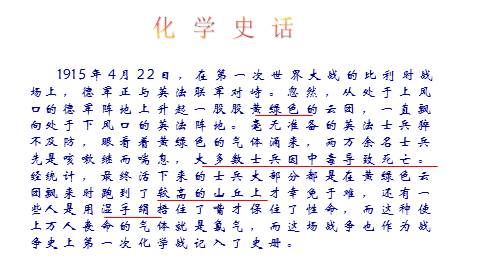 化学史话
1915年4月22日，在第一次世界大战的比利时战
场上，德军正与英法联军对峙。忽然，从处于上风
口的德军阵地上升起一股股黄绿色的云团，一直飘
向处于下风口的英法阵地。毫无准备的英法士兵猝
不及防，眼看着黄绿色的气体涌来，两万余名士兵
先是咳嗽继而喘息，大多数士兵因中毒导致死亡。
经统计，最终活下来的士兵大部分都是在黄绿色云
团飘来时跑到了较高的山丘上才幸免于难，还有一
些人是用湿手绢捂住了嘴才保住了性命，而这种使
上万人丧命的气体就是氯气，而这场战争也作为战
争史上第一次化学战记入了史册。